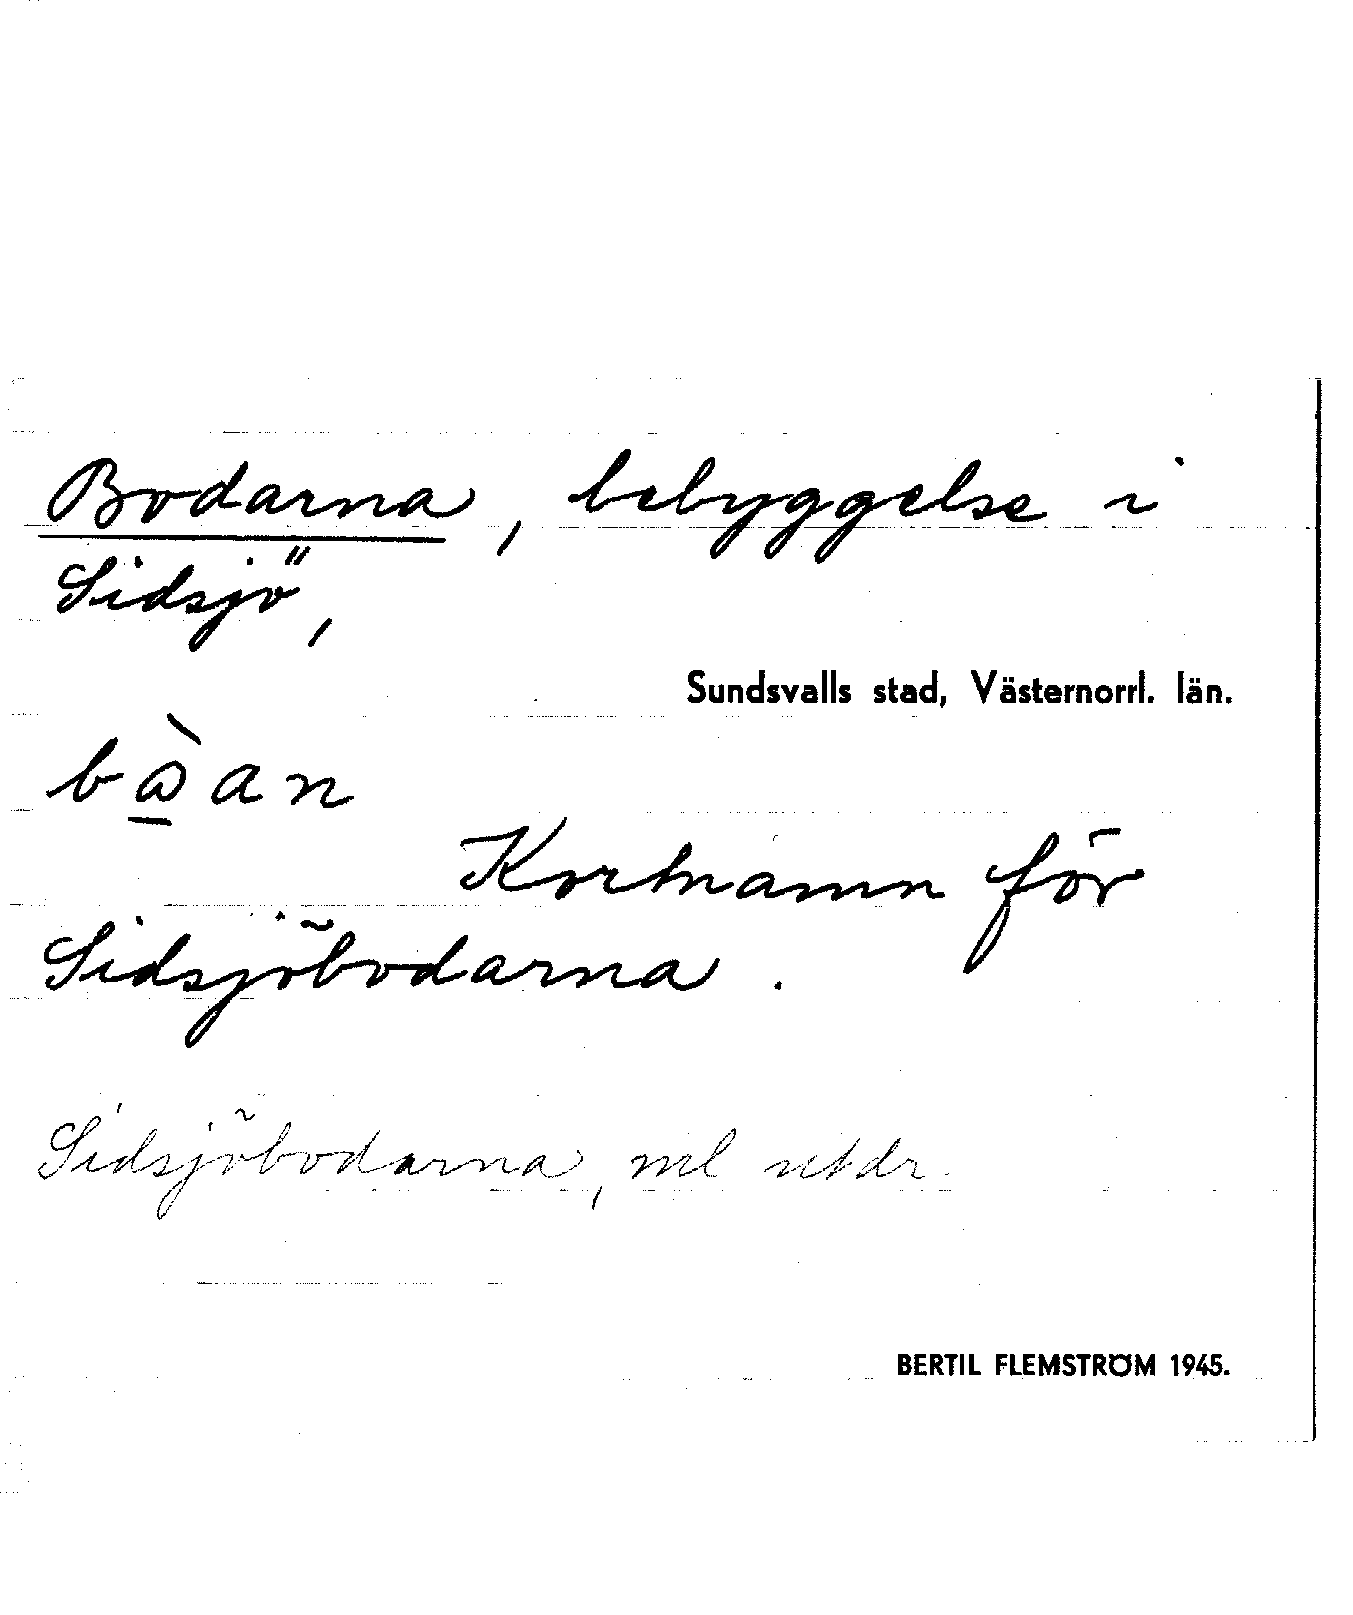 Bodarna, bebyggelse i
Sidsjö,
Sundsvalls stad, Västernorrl. län.
Kortnamn för
Sidsjöbodarna.
Sidsjöbodarna, nel
BERTIL FLEMSTRÖM 1945.